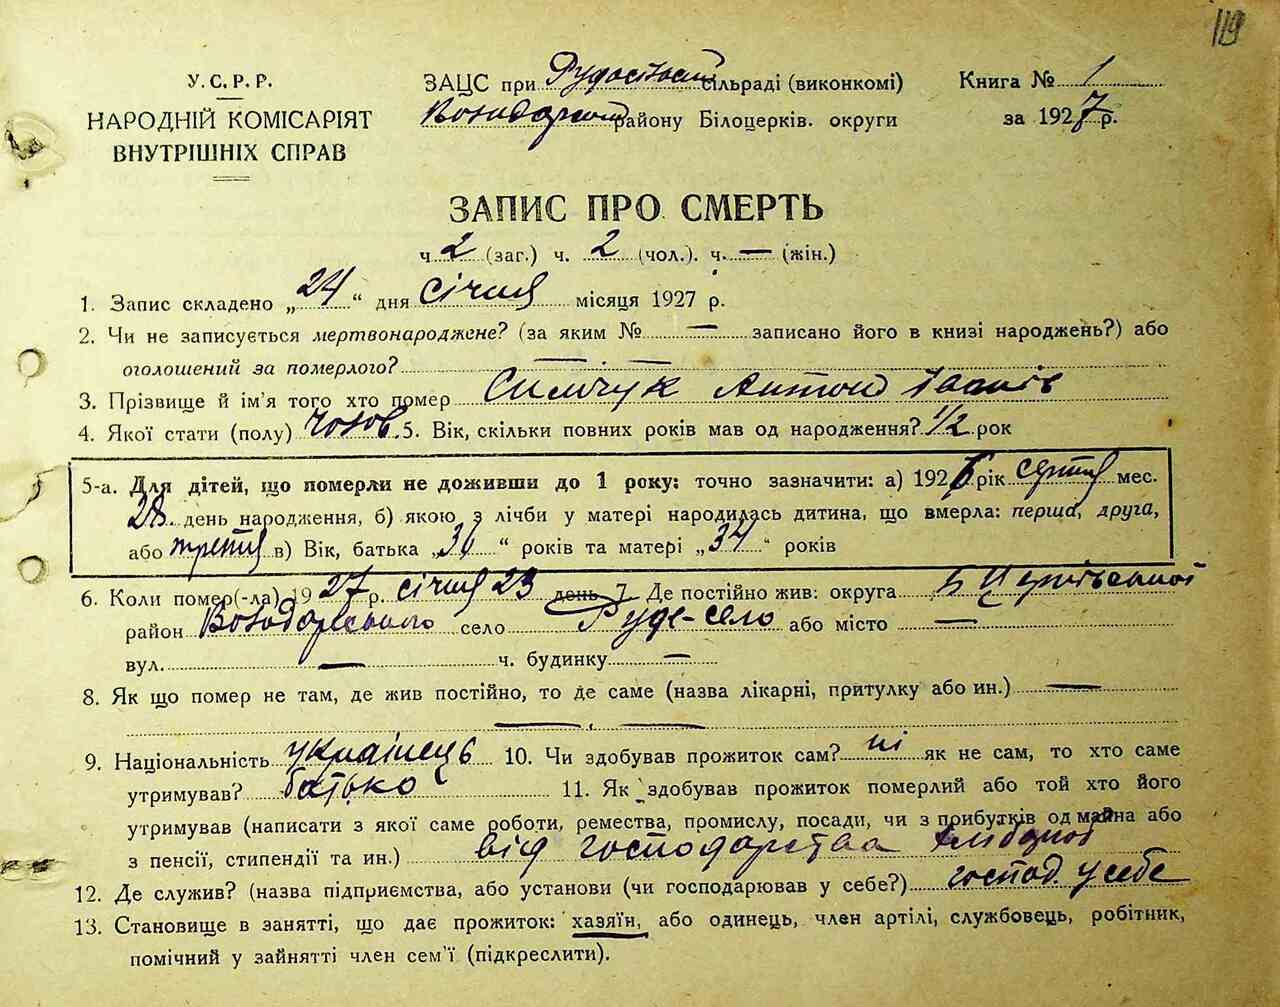 119
У.С.Р.Р.
НАРОДНІЙ КОМІСАРІЯТ
ВНУТРІШНІХ СПРАВ
ЗАЦС при Рудосільськ сільраді (виконкомі)
Володарськ району Білоцерків. округи
Книга № 1
за 1927 р.
ЗАПИС ПРО СМЕРТЬ
ч. 2 (заг.) ч. 2 (чол.). ч. — (жін.)
1. Запис складено „24“ дня січня місяця 1927 р.
2. Чи не записується мертвонароджене? (за яким № — записано його в книзі народжень?) або
оголошений за померлого? — —
3. Прізвище й ім'я того хто помер Симчук Антон Іванів
4. Якої стати (полу) чолов. 5. Вік, скільки повних років мав од народження? 1/2 рок
5-а. Для дітей, що померли не доживши до 1 року: точно зазначити: а) 1926 рік серпня мес.
28 день народження, б) якою з лічби у матері народилась дитина, що вмерла: перша, друга,
або третя в) Вік, батька „36“ років та матері „34“ років
6. Коли помер(-ла) 1927 р. січня 23 день 7. Де постійно жив: округа Б Церківської
район Володарського село Руде-село або місто —
вул. — ч. будинку —
8. Як що помер не там, де жив постійно, то де саме (назва лікарні, притулку або ин.) —
— —
9. Національність українець 10. Чи здобував прожиток сам? ні як не сам, то хто саме
утримував? батько 11. Як здобував прожиток померлий або той хто його
утримував (написати з якої саме роботи, ремества, промислу, посади, чи з прибутків од майна або
з пенсії, стипендії та ин.) від господарства хлібороб
12. Де служив? (назва підприємства, або установи (чи господарював у себе?) господ. у себе
13. Становище в занятті, що дає прожиток: хазяїн, або одинець, член артілі, службовець, робітник,
помічний у зайнятті член сем'ї (підкреслити).